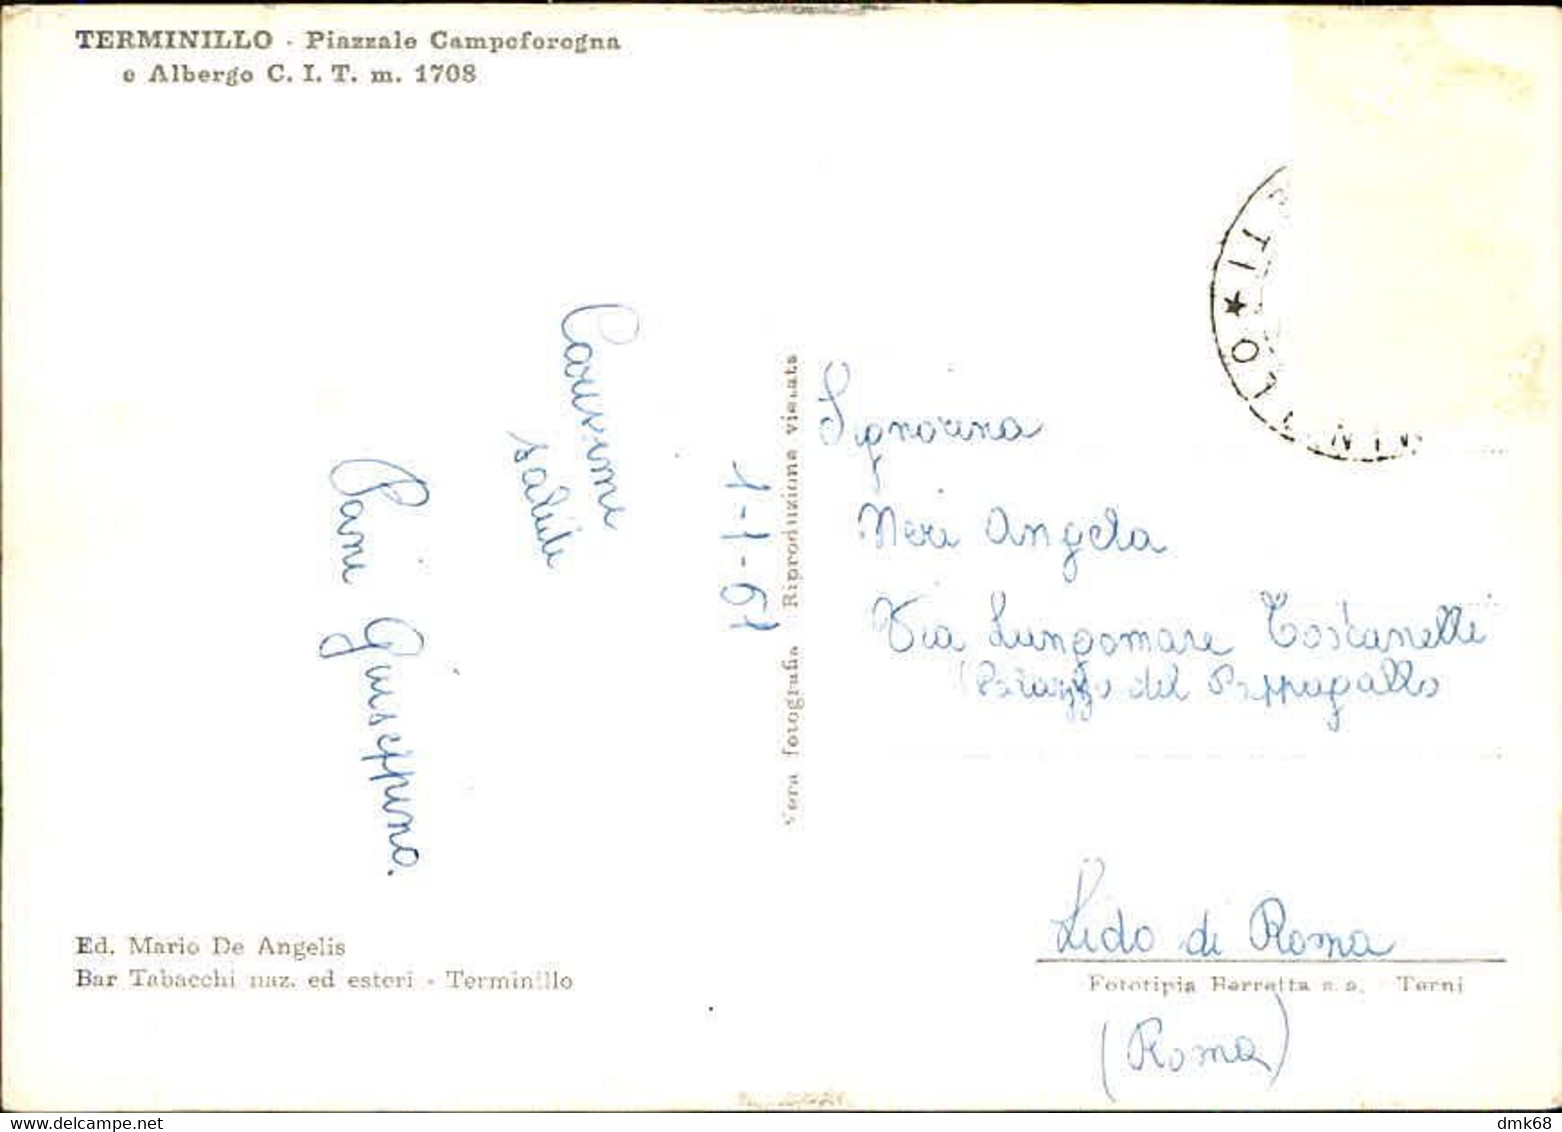 TERMINILLO - Piazzale Campoforogna
e Albergo C. I. T. m. 1708
Carissimi
saluti
Pani Giuseppino.
1-1-61
Vera fotografia Riproduzione vietata
Signorina
Neri Angela
Via Lungomare Toscanelli
(Palazzo del Pappagallo
Lido di Roma
(Roma)
Ed. Mario De Angelis
Bar Tabacchi naz. ed esteri - Terminillo
Fototipia Berretta s.a. - Terni
www.delcampe.net
dmk68